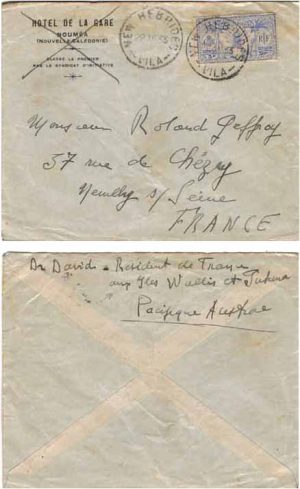 HOTEL DE LA GARE
NOUMÉA
(NOUVELLE-CALÉDONIE)
CLASSÉ LE PREMIER
PAR LE SYNDICAT D'INITIATIVE
NEW HEBRIDES
VILA
NEW HEBRIDES
VILA
Monsieur Roland Geffroy
37 rue de Chézy
Neuilly s/ Seine
FRANCE
Dr David - Résident de France
aux Iles Wallis et Futuna
Pacifique Austral